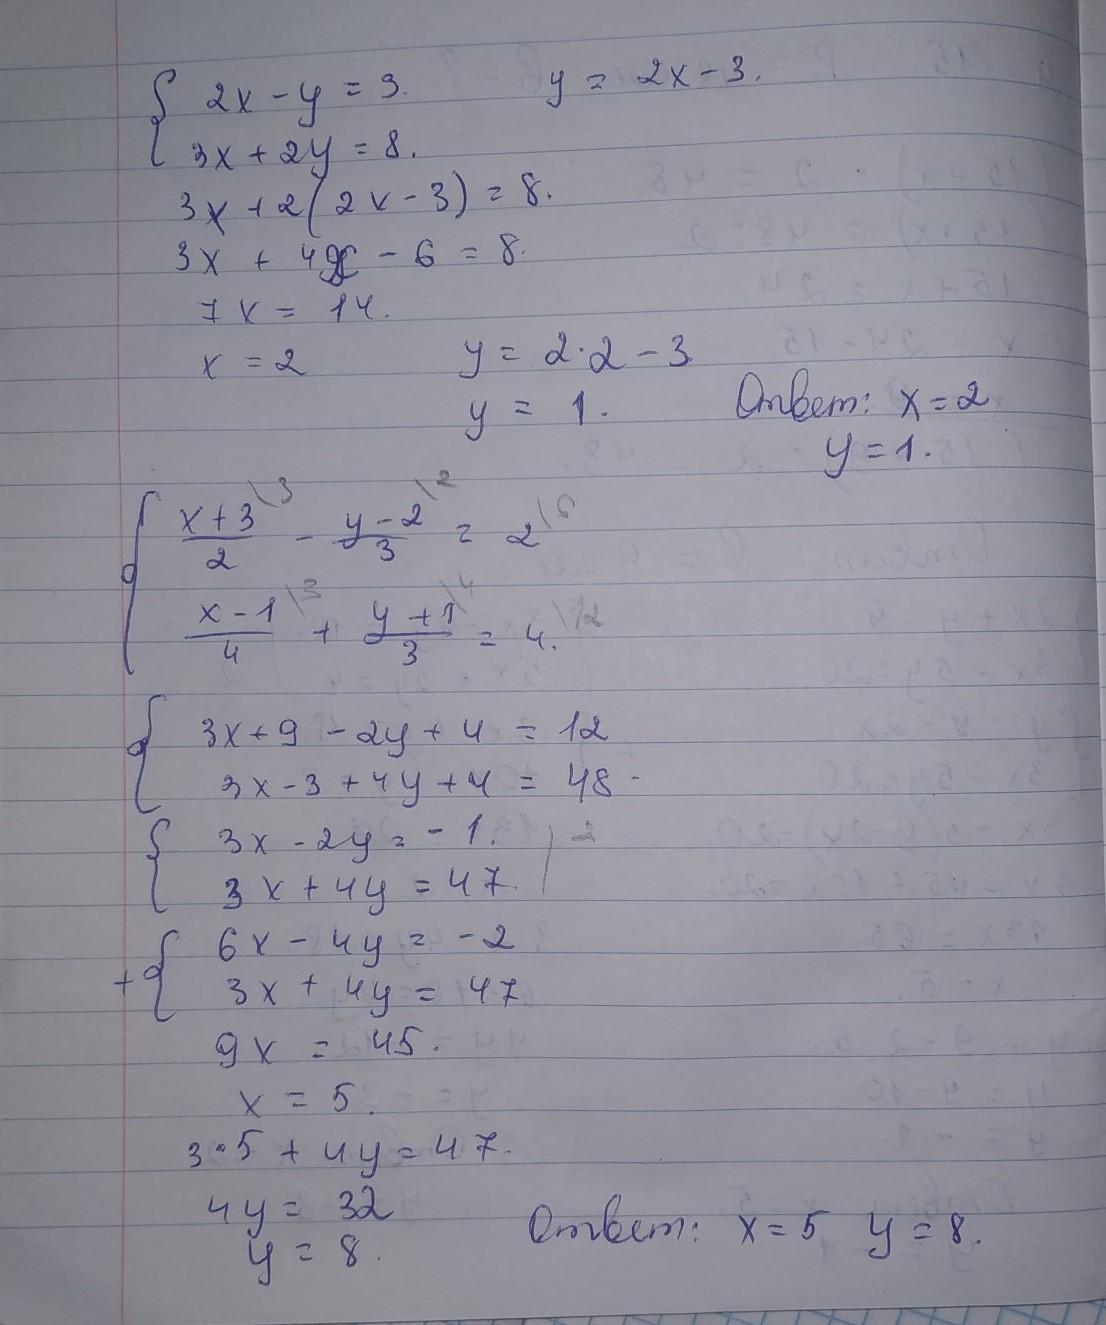 2x - y = 3. y = 2x - 3.
3x + 2y = 8.
3x + 2(2x - 3) = 8.
3x + 4x - 6 = 8.
7x = 14.
x = 2 y = 2·2 - 3
y = 1. Ответ: x = 2
y = 1.
(x + 3)/2 \3 - (y - 2)/3 \2 = 2 \6
(x - 1)/4 \3 + (y + 1)/3 \4 = 4. \12
3x + 9 - 2y + 4 = 12
3x - 3 + 4y + 4 = 48.
3x - 2y = -1. | 2
3x + 4y = 47.
+ 6x - 4y = -2
3x + 4y = 47
9x = 45.
x = 5.
3·5 + 4y = 47.
4y = 32
y = 8. Ответ: x = 5 y = 8.